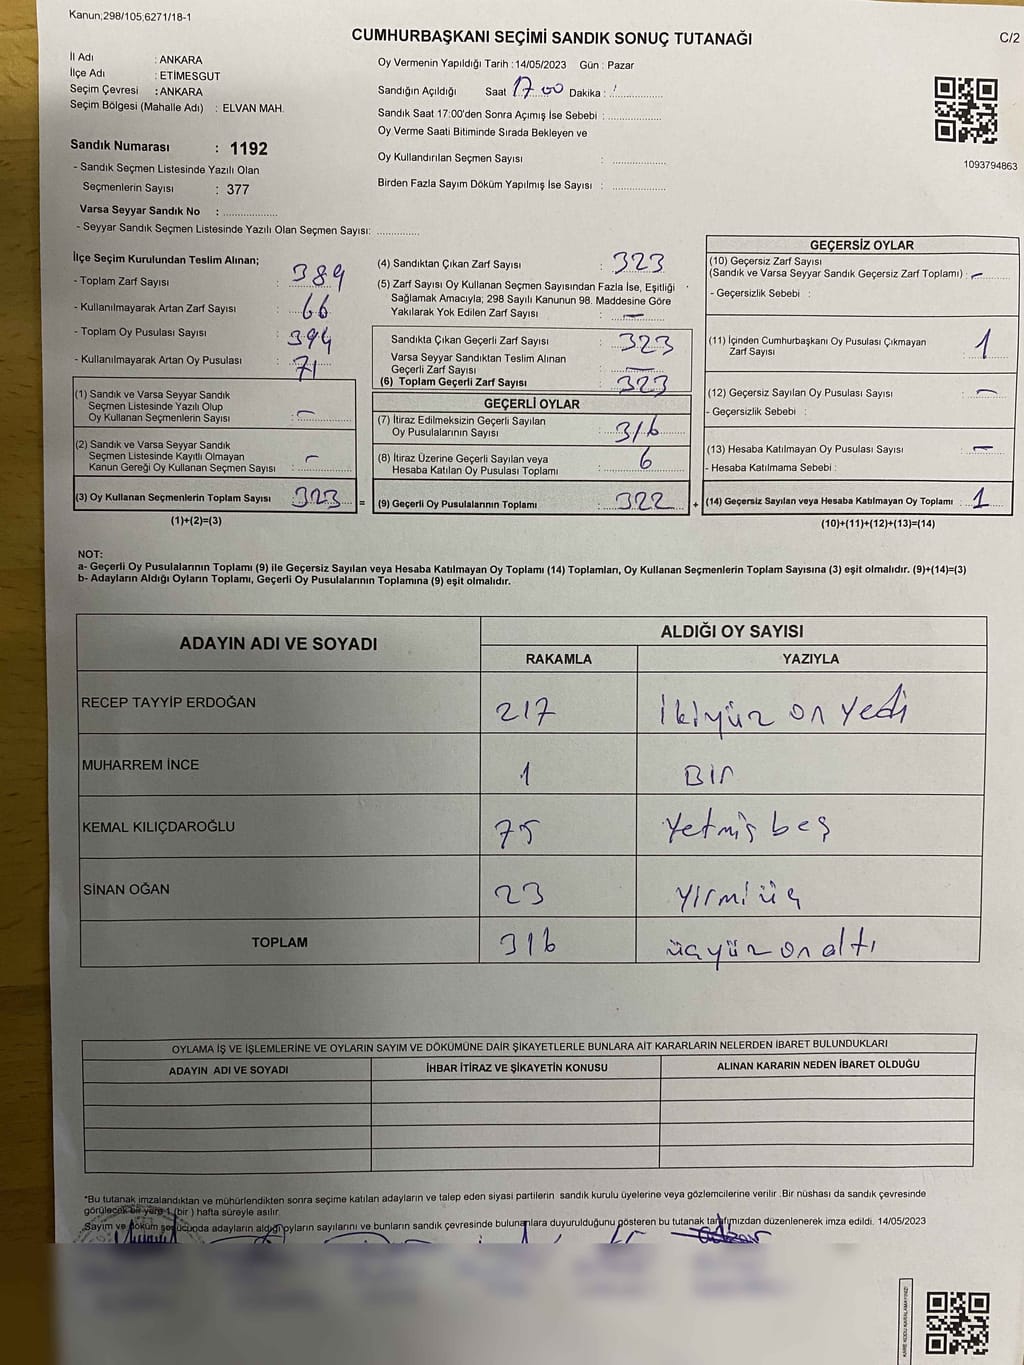 Kanun;298/105,6271/18-1
CUMHURBAŞKANI SEÇİMİ SANDIK SONUÇ TUTANAĞI
C/2
İl Adı : ANKARA
İlçe Adı : ETİMESGUT
Seçim Çevresi : ANKARA
Seçim Bölgesi (Mahalle Adı) : ELVAN MAH.
Sandık Numarası : 1192
- Sandık Seçmen Listesinde Yazılı Olan
Seçmenlerin Sayısı : 377
Varsa Seyyar Sandık No : ..................
- Seyyar Sandık Seçmen Listesinde Yazılı Olan Seçmen Sayısı: ..............
Oy Vermenin Yapıldığı Tarih : 14/05/2023 Gün : Pazar
Sandığın Açıldığı Saat 17 00 Dakika :
Sandık Saat 17:00'den Sonra Açımış İse Sebebi : ..................
Oy Verme Saati Bitiminde Sırada Bekleyen ve
Oy Kullandırılan Seçmen Sayısı : ..................
Birden Fazla Sayım Döküm Yapılmış İse Sayısı : ..................
1093794863
İlçe Seçim Kurulundan Teslim Alınan;
- Toplam Zarf Sayısı : 389
- Kullanılmayarak Artan Zarf Sayısı : 66
- Toplam Oy Pusulası Sayısı : 394
- Kullanılmayarak Artan Oy Pusulası : 71
(1) Sandık ve Varsa Seyyar Sandık
Seçmen Listesinde Yazılı Olup
Oy Kullanan Seçmenlerin Sayısı : -
(2) Sandık ve Varsa Seyyar Sandık
Seçmen Listesinde Kayıtlı Olmayan
Kanun Gereği Oy Kullanan Seçmen Sayısı : -
(3) Oy Kullanan Seçmenlerin Toplam Sayısı 323 =
(1)+(2)=(3)
(4) Sandıktan Çıkan Zarf Sayısı : 323
(5) Zarf Sayısı Oy Kullanan Seçmen Sayısından Fazla İse, Eşitliği
Sağlamak Amacıyla; 298 Sayılı Kanunun 98. Maddesine Göre
Yakılarak Yok Edilen Zarf Sayısı : -
Sandıkta Çıkan Geçerli Zarf Sayısı : 323
Varsa Seyyar Sandıktan Teslim Alınan
Geçerli Zarf Sayısı : -
(6) Toplam Geçerli Zarf Sayısı : 323
GEÇERLİ OYLAR
(7) İtiraz Edilmeksizin Geçerli Sayılan
Oy Pusulalarının Sayısı : 316
(8) İtiraz Üzerine Geçerli Sayılan veya
Hesaba Katılan Oy Pusulası Toplamı : 6
(9) Geçerli Oy Pusulalarının Toplamı : 322 +
GEÇERSİZ OYLAR
(10) Geçersiz Zarf Sayısı
(Sandık ve Varsa Seyyar Sandık Geçersiz Zarf Toplamı) : -
- Geçersizlik Sebebi :
(11) İçinden Cumhurbaşkanı Oy Pusulası Çıkmayan
Zarf Sayısı : 1
(12) Geçersiz Sayılan Oy Pusulası Sayısı : -
- Geçersizlik Sebebi :
(13) Hesaba Katılmayan Oy Pusulası Sayısı : -
- Hesaba Katılmama Sebebi :
(14) Geçersiz Sayılan veya Hesaba Katılmayan Oy Toplamı : 1
(10)+(11)+(12)+(13)=(14)
NOT:
a- Geçerli Oy Pusulalarının Toplamı (9) ile Geçersiz Sayılan veya Hesaba Katılmayan Oy Toplamı (14) Toplamları, Oy Kullanan Seçmenlerin Toplam Sayısına (3) eşit olmalıdır. (9)+(14)=(3)
b- Adayların Aldığı Oyların Toplamı, Geçerli Oy Pusulalarının Toplamına (9) eşit olmalıdır.
ADAYIN ADI VE SOYADI ALDIĞI OY SAYISI
RAKAMLA YAZIYLA
RECEP TAYYİP ERDOĞAN 217 ikiyüz on yedi
MUHARREM İNCE 1 Bir
KEMAL KILIÇDAROĞLU 75 Yetmiş beş
SİNAN OĞAN 23 yirmi üç
TOPLAM 316 üçyüz on altı
OYLAMA İŞ VE İŞLEMLERİNE VE OYLARIN SAYIM VE DÖKÜMÜNE DAİR ŞİKAYETLERLE BUNLARA AİT KARARLARIN NELERDEN İBARET BULUNDUKLARI
ADAYIN ADI VE SOYADI İHBAR İTİRAZ VE ŞİKAYETİN KONUSU ALINAN KARARIN NEDEN İBARET OLDUĞU
*Bu tutanak imzalandıktan ve mühürlendikten sonra seçime katılan adayların ve talep eden siyasi partilerin sandık kurulu üyelerine veya gözlemcilerine verilir .Bir nüshası da sandık çevresinde
görülecek bir yere 1 (bir ) hafta süreyle asılır.
Sayım ve döküm sonucunda adayların aldığı oyların sayılarını ve bunların sandık çevresinde bulunanlara duyurulduğunu gösteren bu tutanak tarafımızdan düzenlenerek imza edildi. 14/05/2023